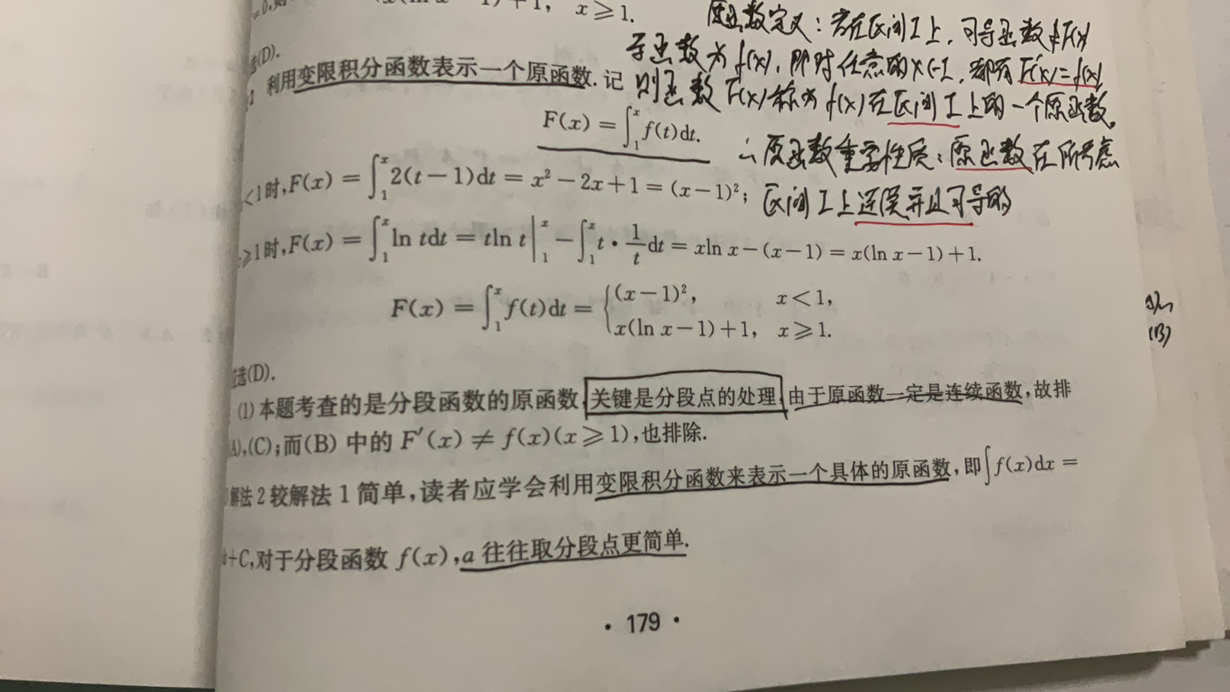 x⩾1.
原函数定义：若在区间I上，可导函数F(x)
选(D).
导函数为f(x)，即对任意的x∈I，都有F'(x)=f(x)
利用变限积分函数表示一个原函数.记
则函数F(x)称为f(x)在区间I上的一个原函数。
F(x) = ∫₁ˣ f(t)dt.
∴原函数重要性质：原函数在所考虑
<1时,F(x) = ∫₁ˣ 2(t−1)dt = x²−2x+1 = (x−1)²;
区间I上连续并且可导的
⩾1时,F(x) = ∫₁ˣ ln tdt = tln t|₁ˣ − ∫₁ˣ t·1/t dt = xln x−(x−1) = x(ln x−1)+1.
F(x) = ∫₁ˣ f(t)dt = { (x−1)², x<1,
x(ln x−1)+1, x⩾1.
(B)
选(D).
(1)本题考查的是分段函数的原函数,关键是分段点的处理.由于原函数一定是连续函数,故排
(A),(C);而(B)中的F′(x)≠f(x)(x⩾1),也排除.
解法2较解法1简单,读者应学会利用变限积分函数来表示一个具体的原函数,即∫f(x)dx =
+C,对于分段函数 f(x),a往往取分段点更简单.
· 179 ·